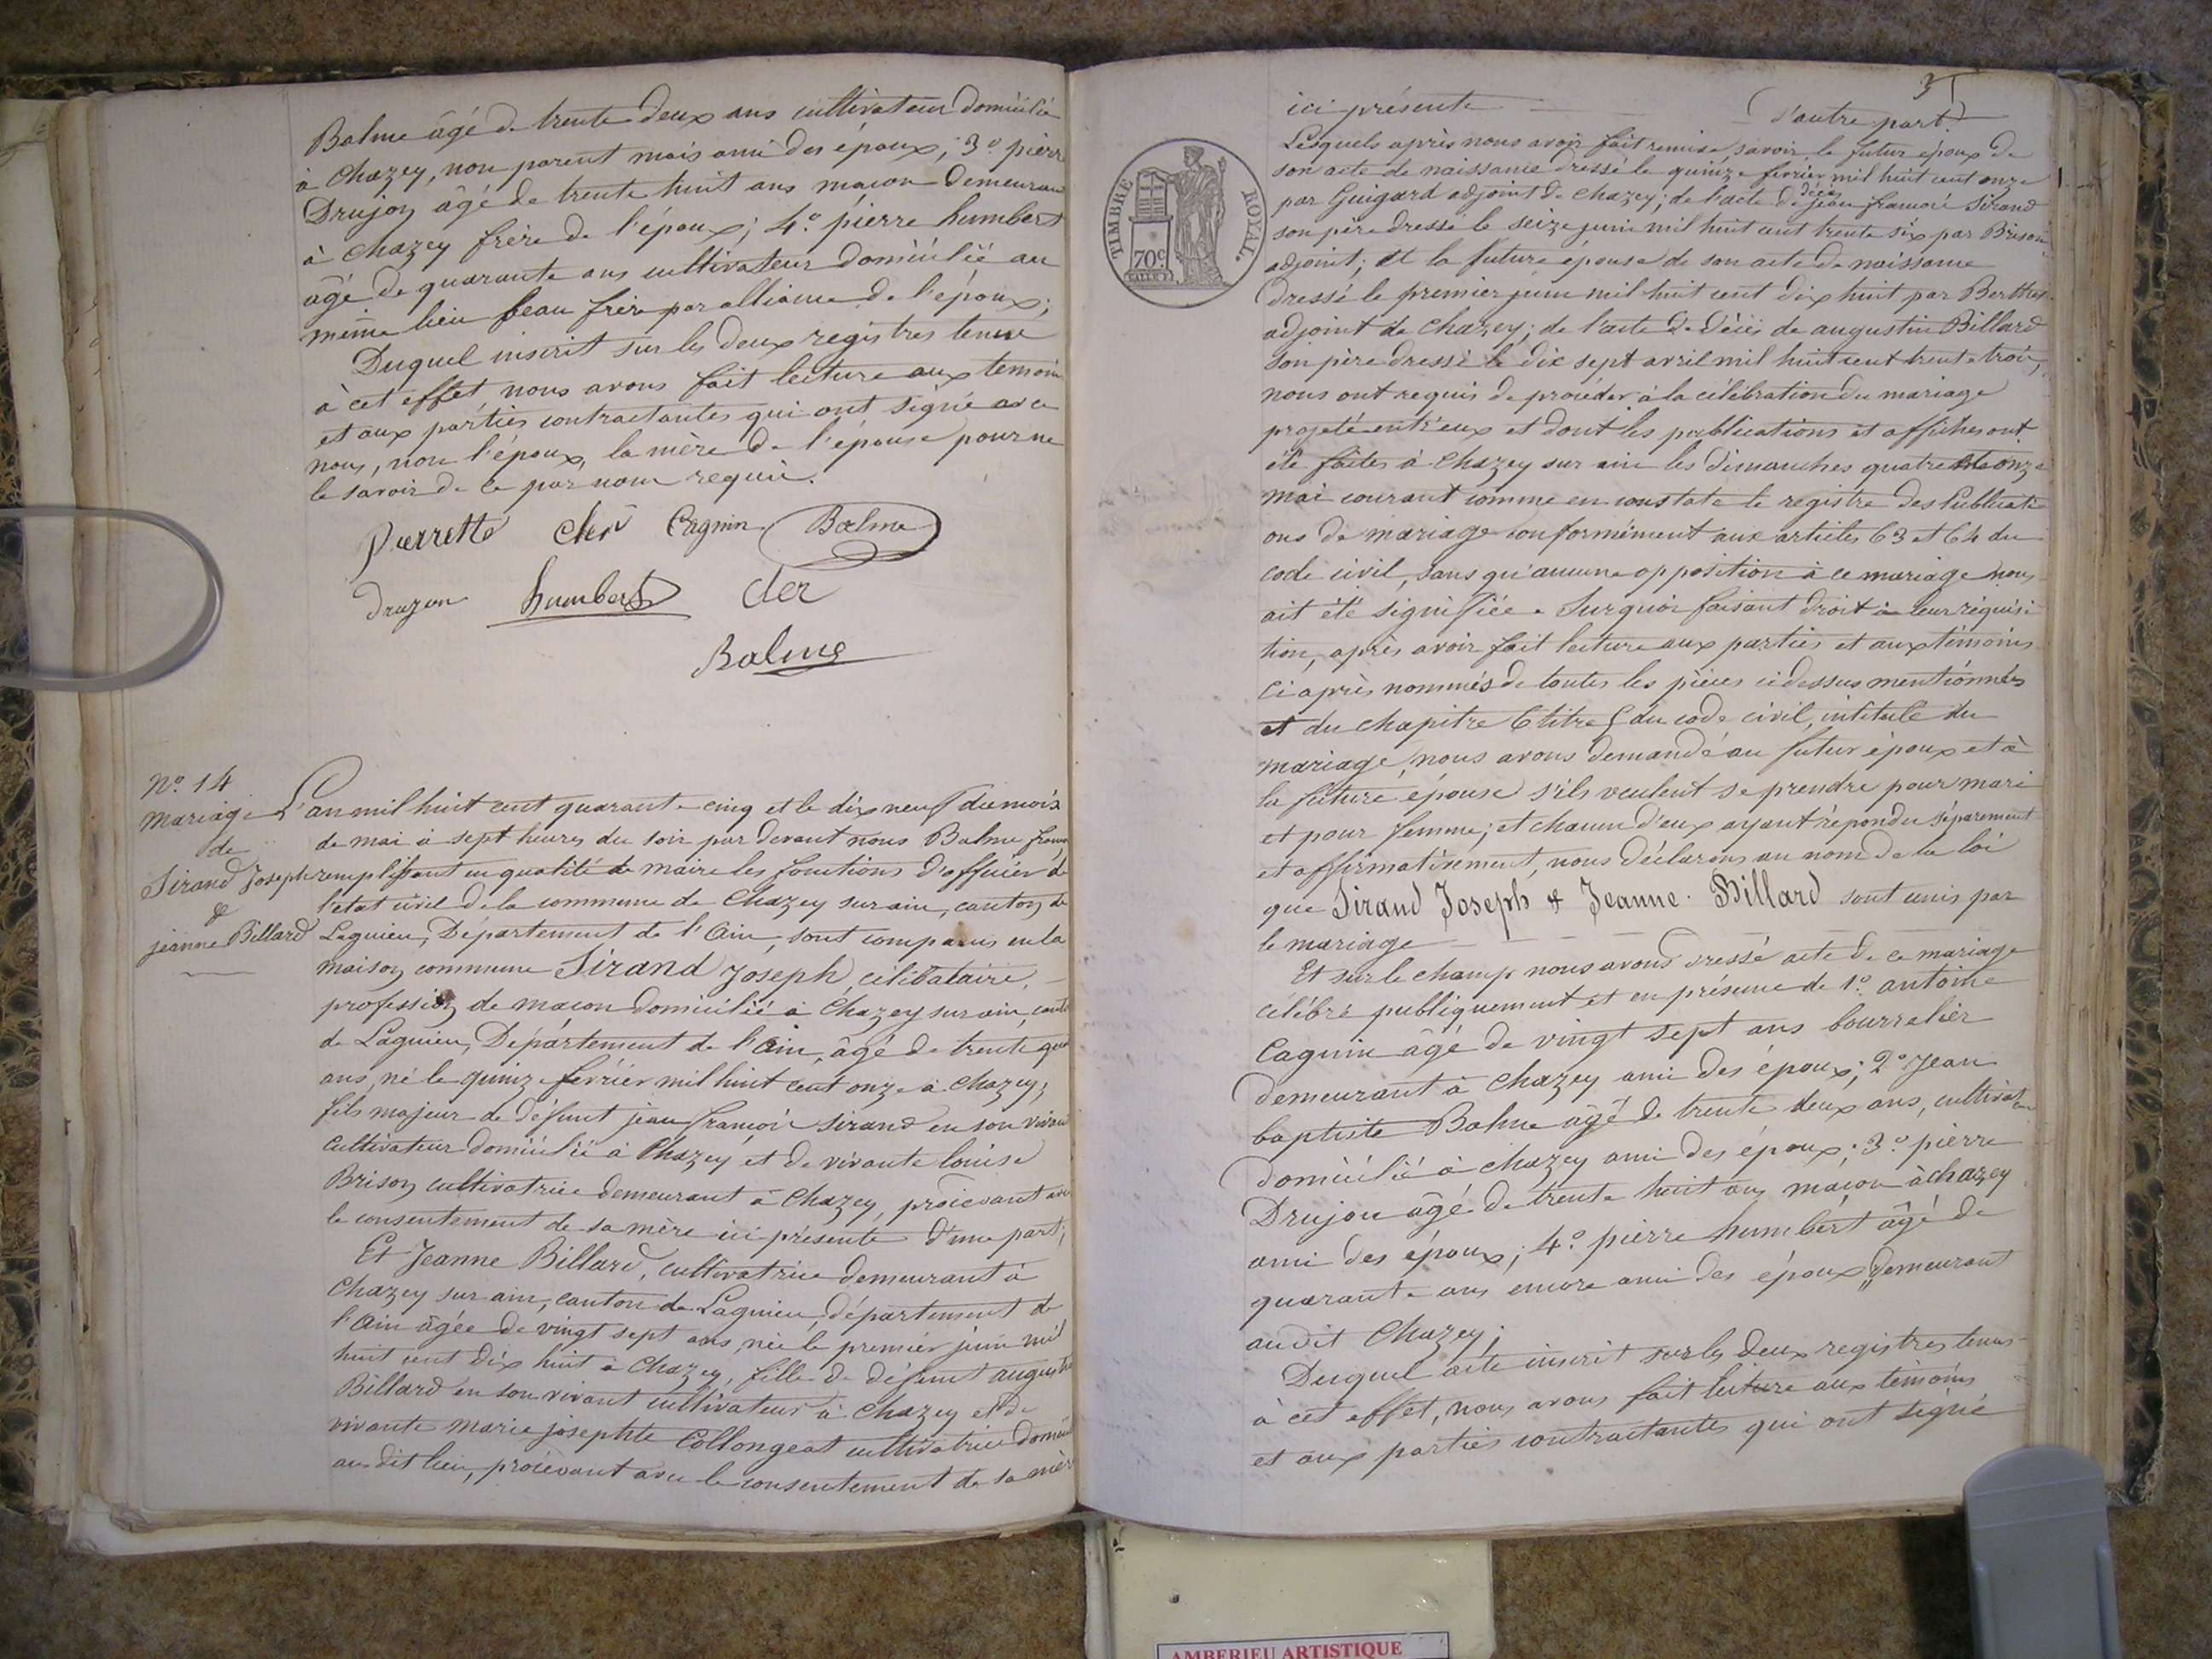 Balme âgé de trente deux ans cultivateur domicilié
à Chazey, non parent mais ami des époux; 3º pierre
Drujon âgé de trente huit ans maçon demeurant
à Chazey frère de l'époux; 4º pierre humbert
âgé de quarante ans cultivateur domicilié au
même lieu beau frère par alliance de l'époux;
Duquel inscrit sur les deux registres tenus
à cet effet, nous avons fait lecture aux temoins
et aux parties contractantes qui ont signé avec
nous, non l'époux, la mère de l'épouse pour ne
le savoir de ce par nous requis.
Pierrette Cagnin Balme
Drujon humbert
Balme
Nº 14
mariage
de
Sirand Joseph
&
jeanne Billard
L'an mil huit cent quarante cinq et le dix neuf du mois
de mai à sept heures du soir par devant nous Balme
remplissant en qualité de maire les fonctions d'officier de
l'etat civil de la commune de Chazey sur ain, canton de
Lagnieu, Département de l'Ain, sont comparus en la
maison commune Sirand Joseph, célibataire,
profession de maçon domicilié à Chazey sur ain, cant
de Lagnieu, Département de l'Ain, âgé de trente qua
ans, né le quinze fevrier mil huit cent onze à Chazey;
fils majeur de défunt jean françois sirand en son vivant
cultivateur domicilié à Chazey et de vivante louise
Brison cultivatrice demeurant à Chazey, procédant avec
le consentement de sa mère ici présente d'une part;
Et Jeanne Billard, cultivatrice demeurant à
Chazey sur ain, canton de Lagnieu département de
l'Ain âgée de vingt sept ans, née le premier juin mil
huit cent dix huit à Chazey, fille de défunt augustin
Billard en son vivant cultivateur à Chazey et de
vivante marie josephte Collongeat cultivatrice
au dit lieu, procédant avec le consentement de sa mère
3
TIMBRE ROYAL.
70c
ici présente d'autre part.
Lesquels après nous avoir fait remise, savoir, le futur époux de
son acte de naissance dressé le quinze février mil huit cent onze
par Guigard adjoint de Chazey; de l'acte de décès jean francois Sirand
son père dressé le seize juin mil huit cent trente six par Brison
adjoint; et la future épouse de son acte de naissance
dressé le premier juin mil huit cent dix huit par
adjoint de Chazey; de l'acte de décès de augustin Billard
son père dressé le dix sept avril mil huit cent trente trois,
nous ont requis de procéder à la célébration du mariage
projeté entr'eux et dont les publications et affiches ont
été faites à Chazey sur ain les dimanches quatre et onze
mai courant comme en constate le registre des Publicati
ons de mariage conformément aux articles 63 et 64 du
code civil, sans qu'aucune opposition à ce mariage nous
ait été signifiée. Sur quoi faisant droit à leur réquisi
tion, après avoir fait lecture aux parties et aux témoins
ci après nommés de toutes les pièces ci dessus mentionnées
et du chapitre 6 titre 5 du code civil, intitulé du
mariage, nous avons demandé au futur époux et à
la future épouse s'ils veulent se prendre pour mari
et pour femme; et chacun d'eux ayant répondu séparement
et affirmativement, nous déclarons au nom de la loi
que Sirand Joseph & Jeanne Billard sont unis par
le mariage
Et sur le champ nous avons dressé acte de ce mariage
célébré publiquement et en présence de 1º antoine
Cagnin âgé de vingt sept ans bourrelier
demeurant à Chazey ami des époux; 2º Jean
baptiste Balme âgé de trente deux ans, cultivateur
domicilié à Chazey ami des époux; 3º pierre
Drujon âgé de trente huit ans maçon à chazey
ami des époux; 4º pierre humbert âgé de
quarante ans encore ami des époux demeurant
au dit Chazey;
Duquel acte inscrit sur les deux registres tenus
à cet effet, nous avons fait lecture aux témoins
et aux parties contractantes qui ont signé
AMBERIEU ARTISTIQUE